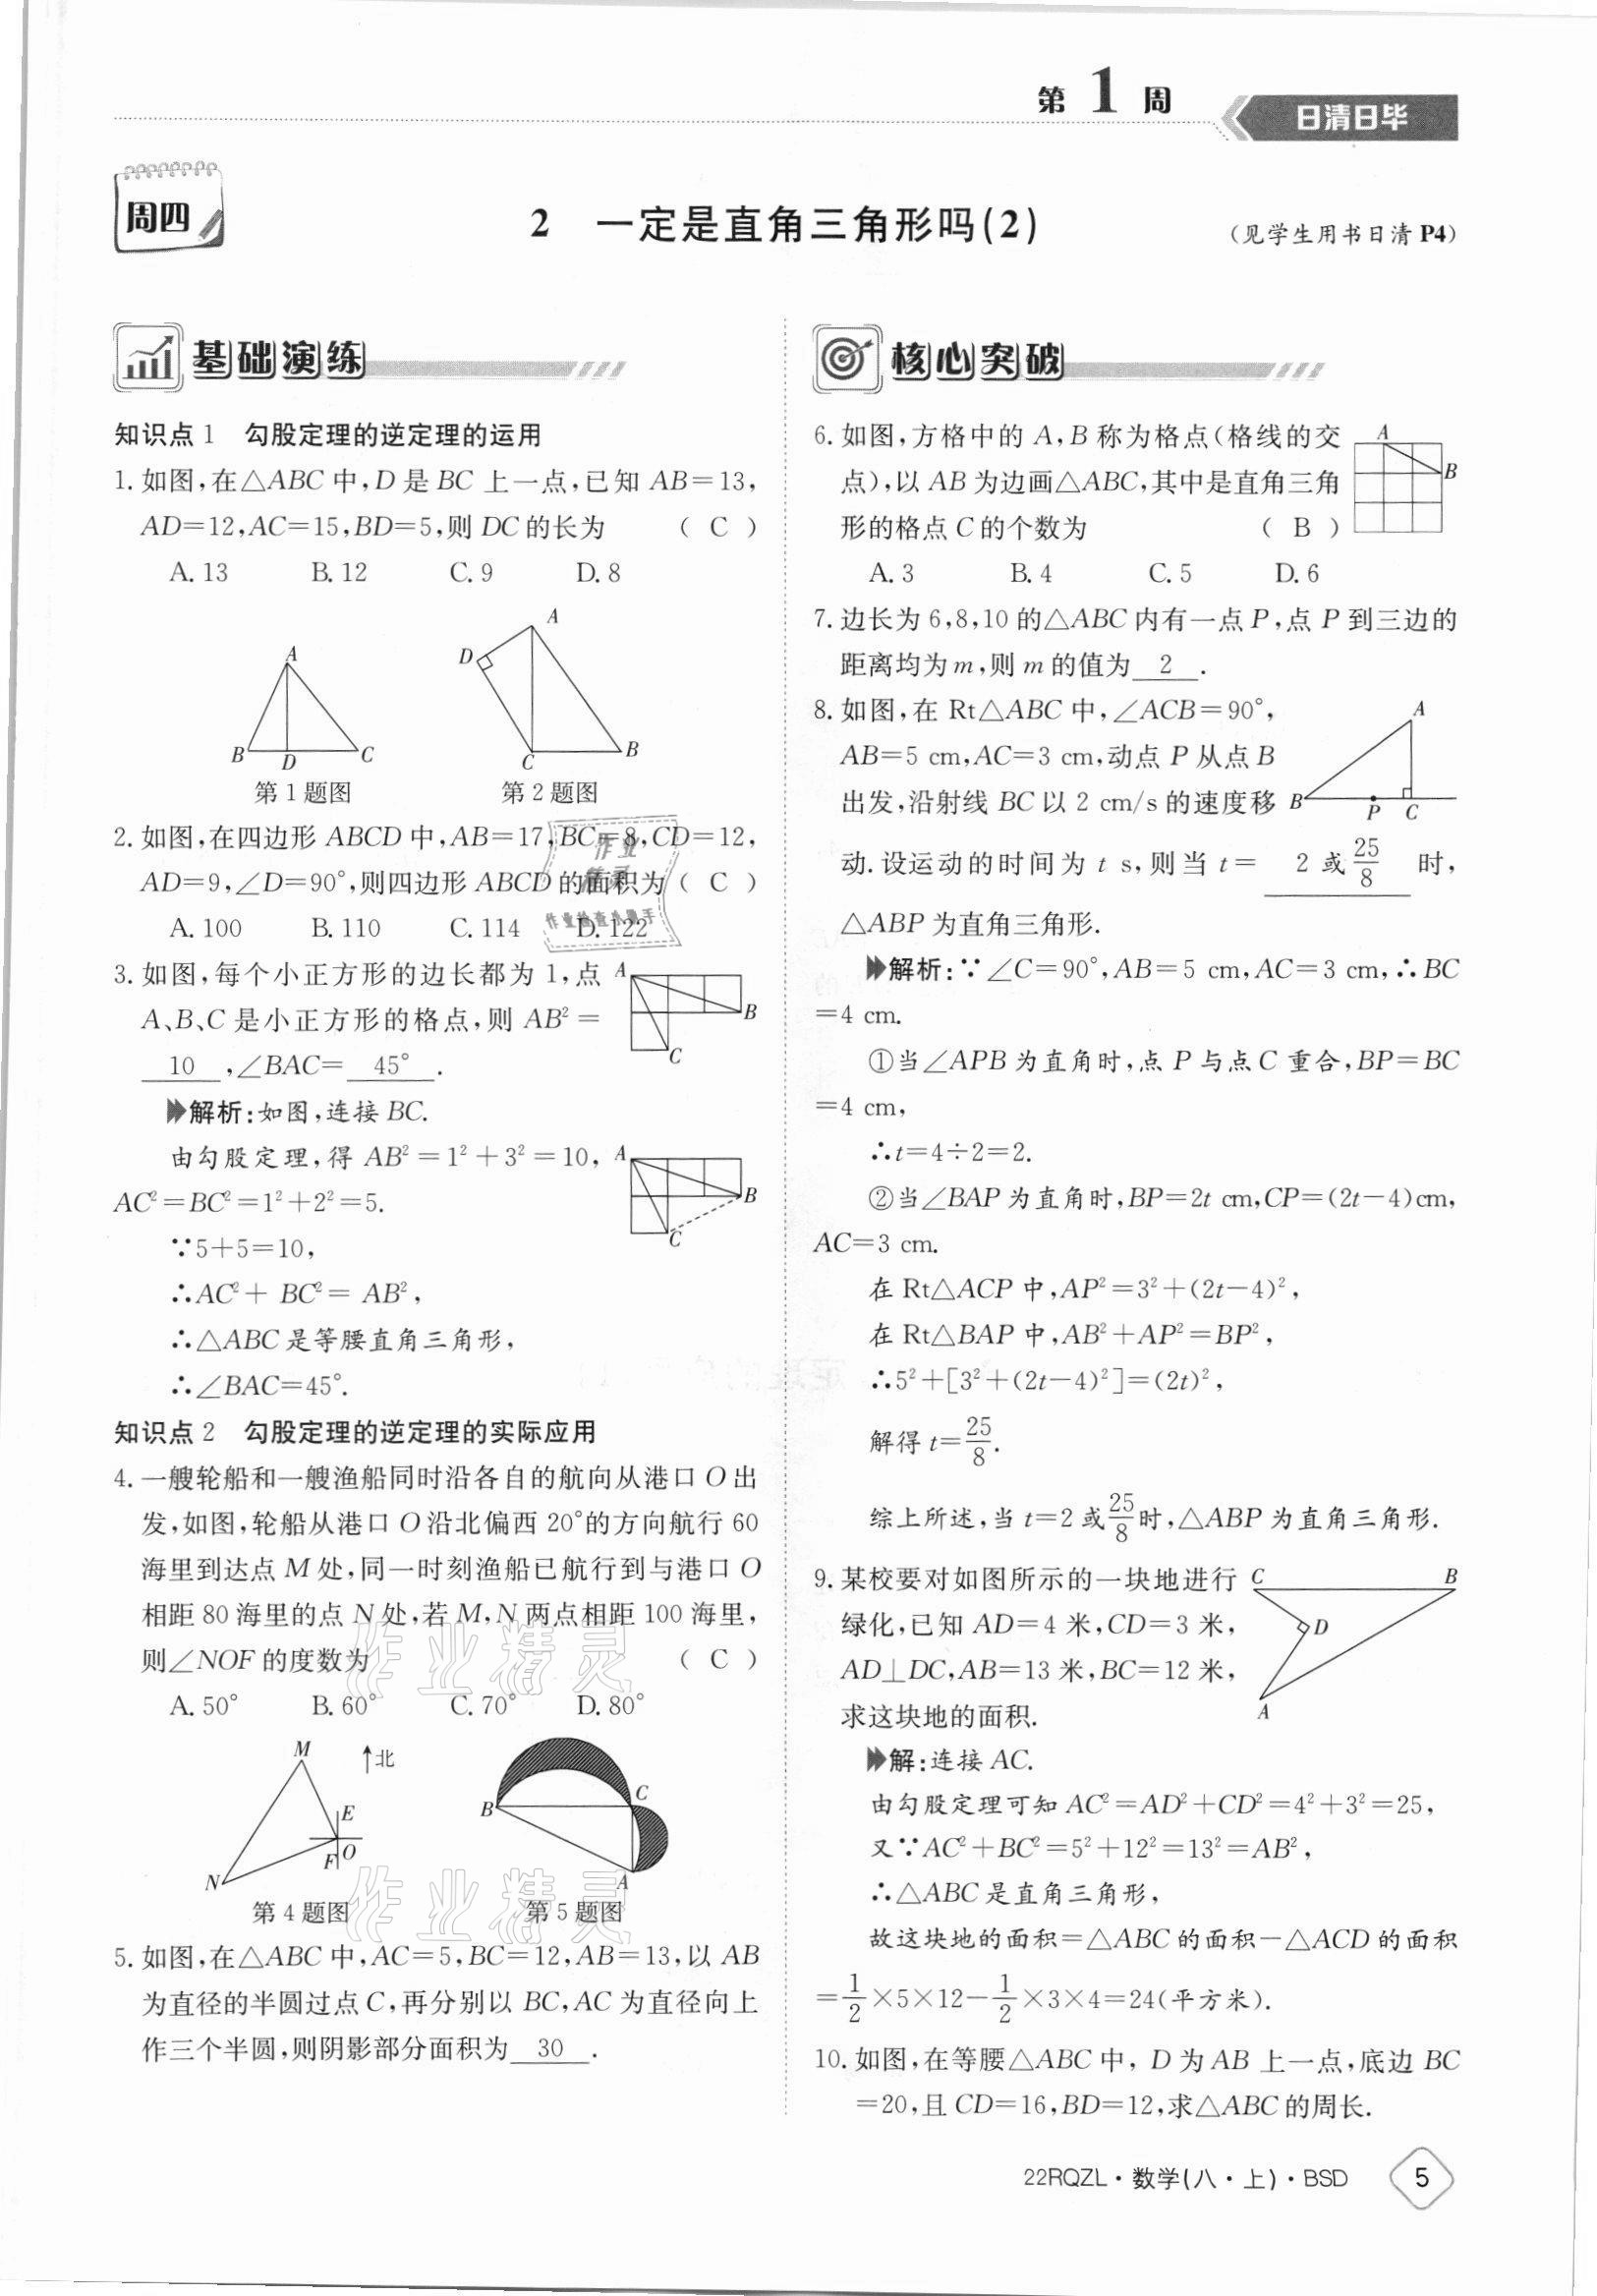 第 1 周
日清日毕
周四
2 一定是直角三角形吗(2)
(见学生用书日清 P4)
基础演练
知识点 1 勾股定理的逆定理的运用
1. 如图,在△ABC 中,D 是 BC 上一点,已知 AB=13,
AD=12,AC=15,BD=5,则 DC 的长为 ( C )
A. 13 B. 12 C. 9 D. 8
A
B
D
C
第 1 题图
A
D
C
B
第 2 题图
2. 如图,在四边形 ABCD 中,AB=17,BC=8,CD=12,
AD=9,∠D=90°,则四边形 ABCD 的面积为 ( C )
A. 100 B. 110 C. 114 D. 122
3. 如图,每个小正方形的边长都为 1,点
A、B、C 是小正方形的格点,则 AB²=
10 ,∠BAC= 45° .
A
B
C
解析:如图,连接 BC.
由勾股定理,得 AB²=1²+3²=10,
AC²=BC²=1²+2²=5.
A
B
C
∵5+5=10,
∴AC²+ BC²= AB²,
∴△ABC 是等腰直角三角形,
∴∠BAC=45°.
知识点 2 勾股定理的逆定理的实际应用
4. 一艘轮船和一艘渔船同时沿各自的航向从港口 O 出
发,如图,轮船从港口 O 沿北偏西 20°的方向航行 60
海里到达点 M 处,同一时刻渔船已航行到与港口 O
相距 80 海里的点 N 处,若 M,N 两点相距 100 海里,
则∠NOF 的度数为 ( C )
A. 50° B. 60° C. 70° D. 80°
M
北
E
O
F
N
第 4 题图
B
C
A
第 5 题图
5. 如图,在△ABC 中,AC=5,BC=12,AB=13,以 AB
为直径的半圆过点 C,再分别以 BC,AC 为直径向上
作三个半圆,则阴影部分面积为 30 .
核心突破
6. 如图,方格中的 A,B 称为格点(格线的交
点),以 AB 为边画△ABC,其中是直角三角
形的格点 C 的个数为 ( B )
A. 3 B. 4 C. 5 D. 6
A
B
7. 边长为 6,8,10 的△ABC 内有一点 P,点 P 到三边的
距离均为 m,则 m 的值为 2 .
8. 如图,在 Rt△ABC 中,∠ACB=90°,
AB=5 cm,AC=3 cm,动点 P 从点 B
出发,沿射线 BC 以 2 cm/s 的速度移
动. 设运动的时间为 t s,则当 t= 2 或 25/8 时,
△ABP 为直角三角形.
A
B
P
C
解析:∵∠C=90°,AB=5 cm,AC=3 cm,∴BC
=4 cm.
①当∠APB 为直角时,点 P 与点 C 重合,BP=BC
=4 cm,
∴t=4÷2=2.
②当∠BAP 为直角时,BP=2t cm,CP=(2t-4)cm,
AC=3 cm.
在 Rt△ACP 中,AP²=3²+(2t-4)²,
在 Rt△BAP 中,AB²+AP²=BP²,
∴5²+[3²+(2t-4)²]=(2t)²,
解得 t=25/8.
综上所述,当 t=2 或 25/8 时,△ABP 为直角三角形.
9. 某校要对如图所示的一块地进行
绿化,已知 AD=4 米,CD=3 米,
AD⊥DC,AB=13 米,BC=12 米,
求这块地的面积.
C
B
D
A
解:连接 AC.
由勾股定理可知 AC²=AD²+CD²=4²+3²=25,
又∵AC²+BC²=5²+12²=13²=AB²,
∴△ABC 是直角三角形,
故这块地的面积=△ABC 的面积-△ACD 的面积
=1/2×5×12-1/2×3×4=24(平方米).
10. 如图,在等腰△ABC 中, D 为 AB 上一点,底边 BC
=20,且 CD=16,BD=12,求△ABC 的周长.
22RQZL·数学(八·上)·BSD
5
作业精灵
作业精灵
作业
精灵
作业检查小助手